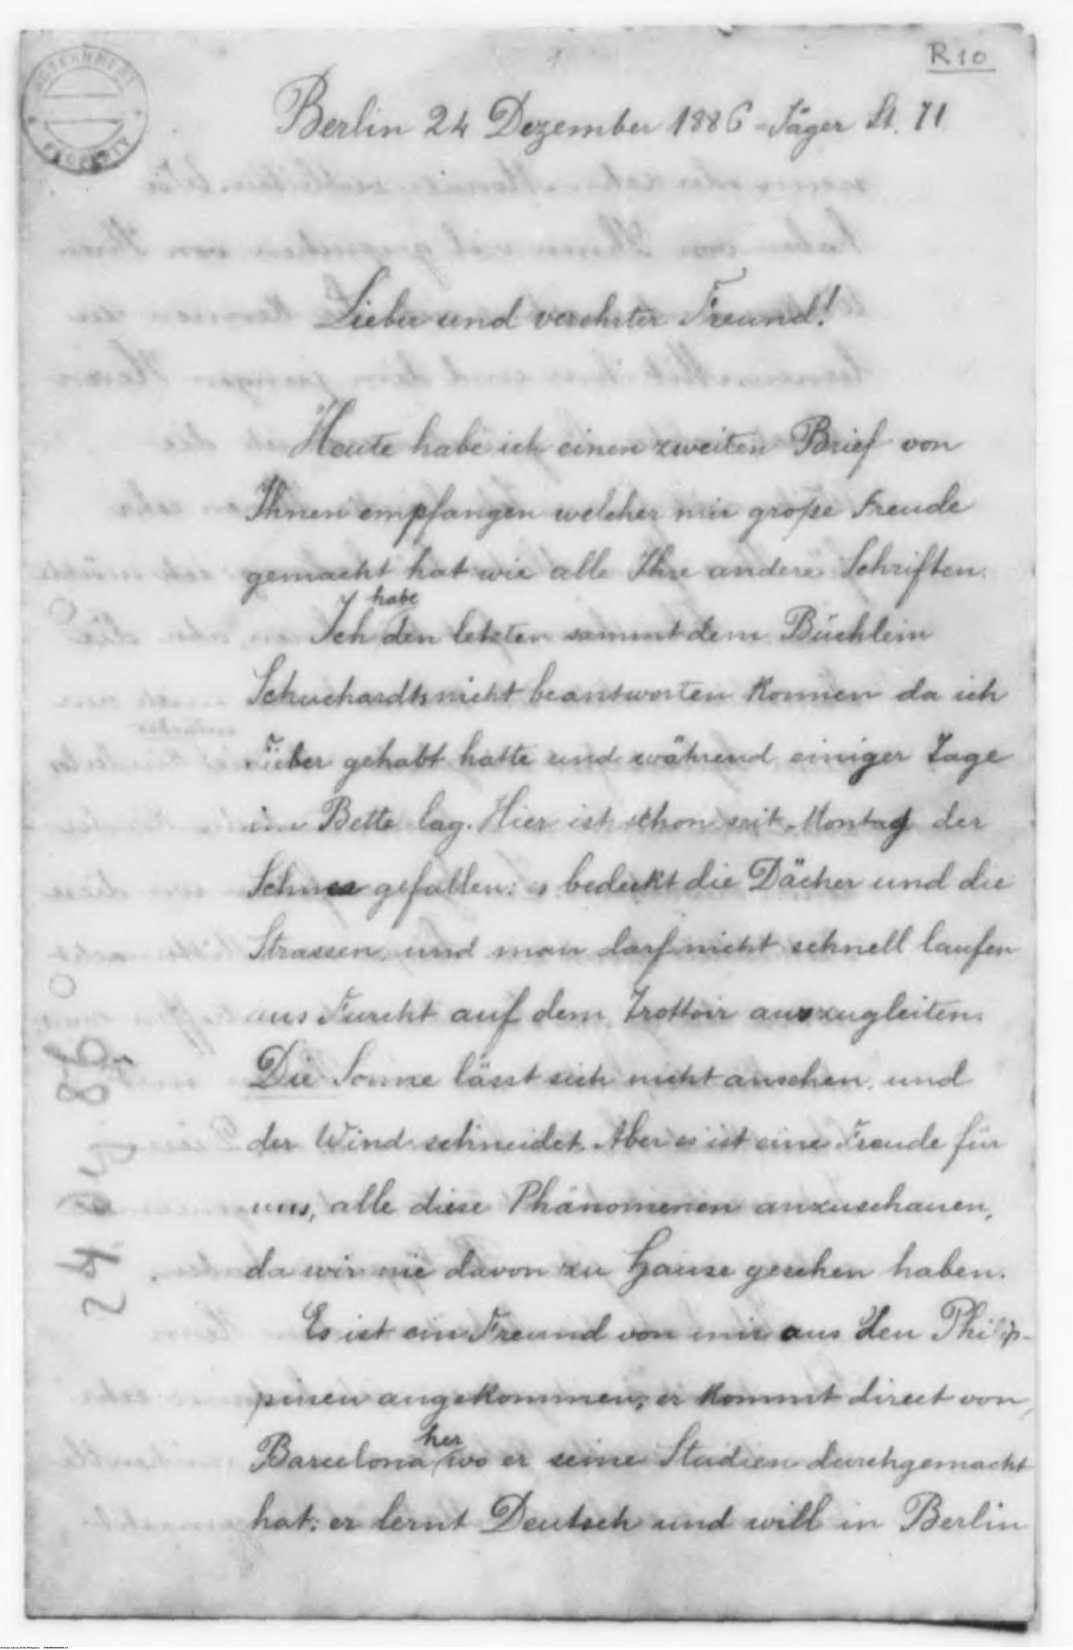 R10
GOVERNMENT PROPERTY
Berlin 24 Dezember 1886 - Jäger St. 71
Lieber und verehrter Freund!
Heute habe ich einen zweiten Brief von
Ihnen empfangen welcher mir große Freude
gemacht hat wie alle Ihre andere Schriften.
habe
Ich den letzten sammt dem Büchlein
Schuchardts nicht beantworten können da ich
Fieber gehabt hatte und während einiger Tage
im Bette lag. Hier ist schon seit Montag der
Schnee gefallen: es bedeckt die Dächer und die
Strassen, und man darf nicht schnell laufen
aus Furcht auf dem Trottoir auszugleiten.
Die Sonne lässt sich nicht ansehen, und
der Wind schneidet. Aber es ist eine Freude für
uns, alle diese Phänomenen anzuschauen,
da wir nie davon zu Hause gesehen haben.
Es ist ein Freund von mir aus den Philip-
pinen angekommen; er kommt direct von
her
Barcelona, wo er seine Studien durchgemacht
hat: er lernt Deutsch und will in Berlin